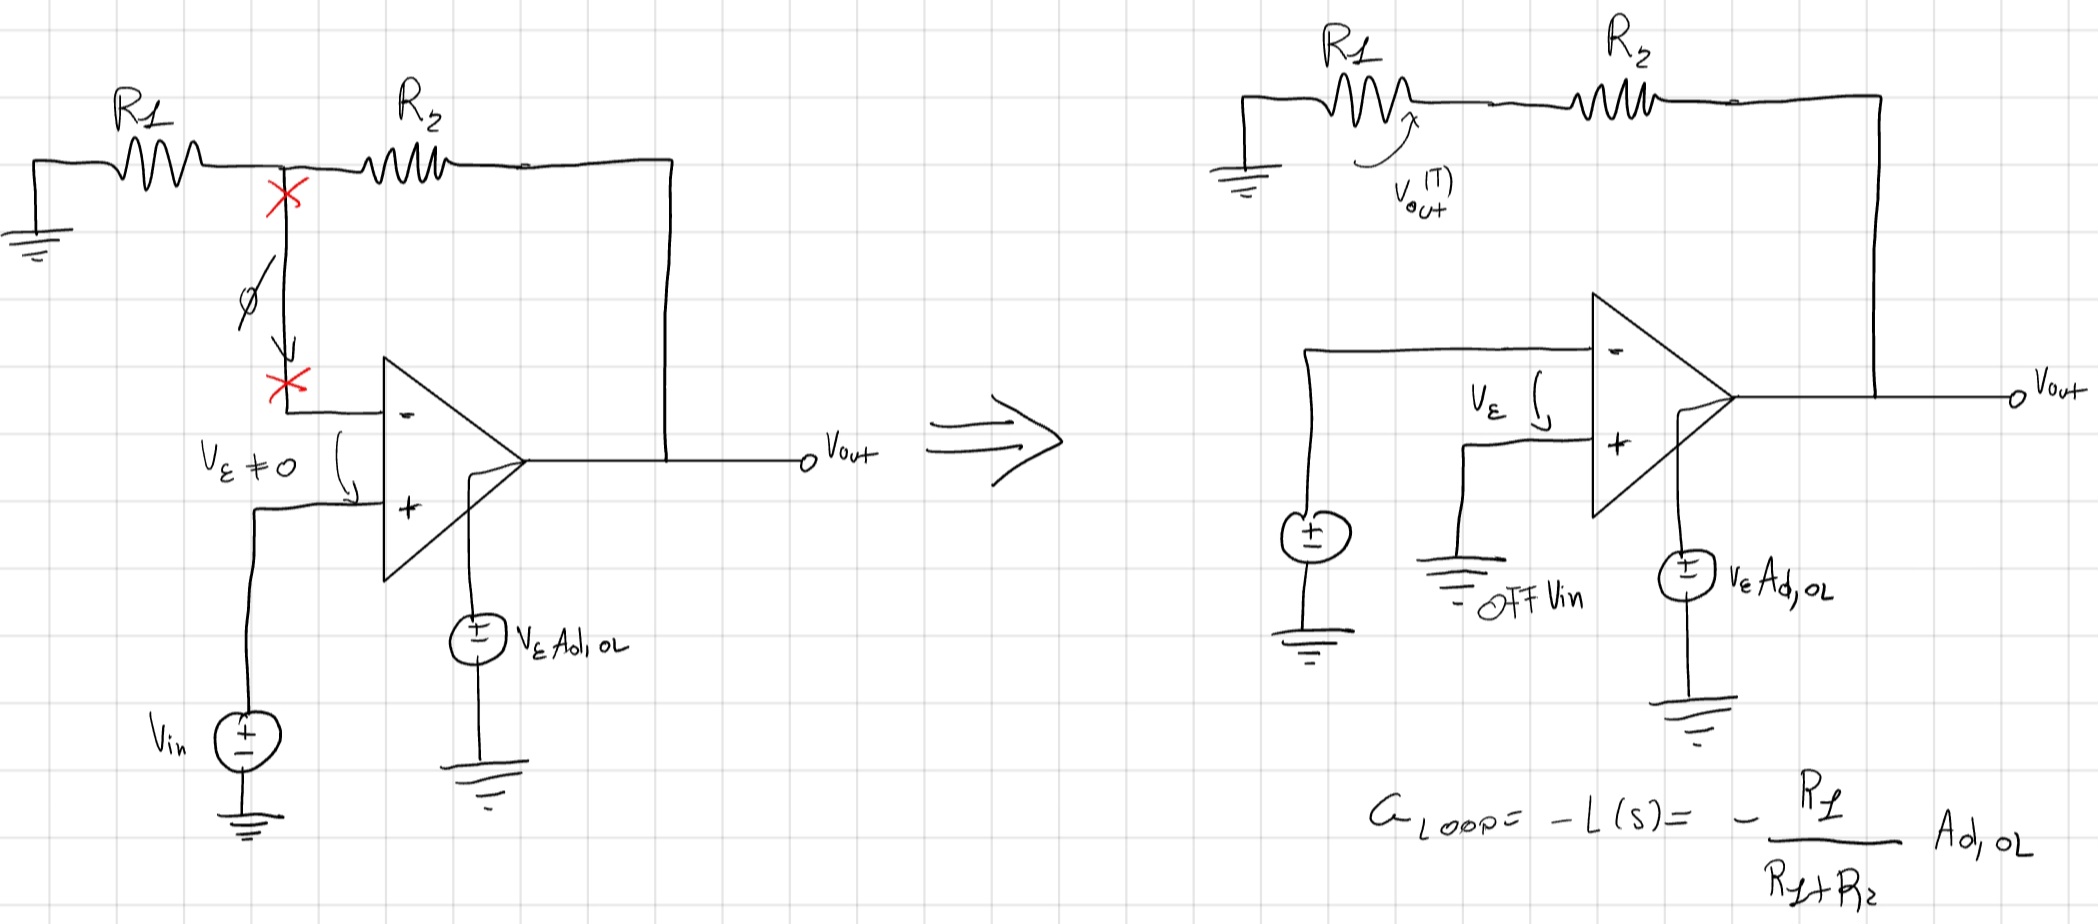 R1
R2
Ø
-
+
Vε ≠ 0
Vout
± Vε Ad,OL
Vin ±
R1
R2
Vout(T)
-
+
Vε
Vout
±
OFF Vin
± Vε Ad,OL
GLOOP = -L(s) = - R1 / R1+R2 Ad,OL